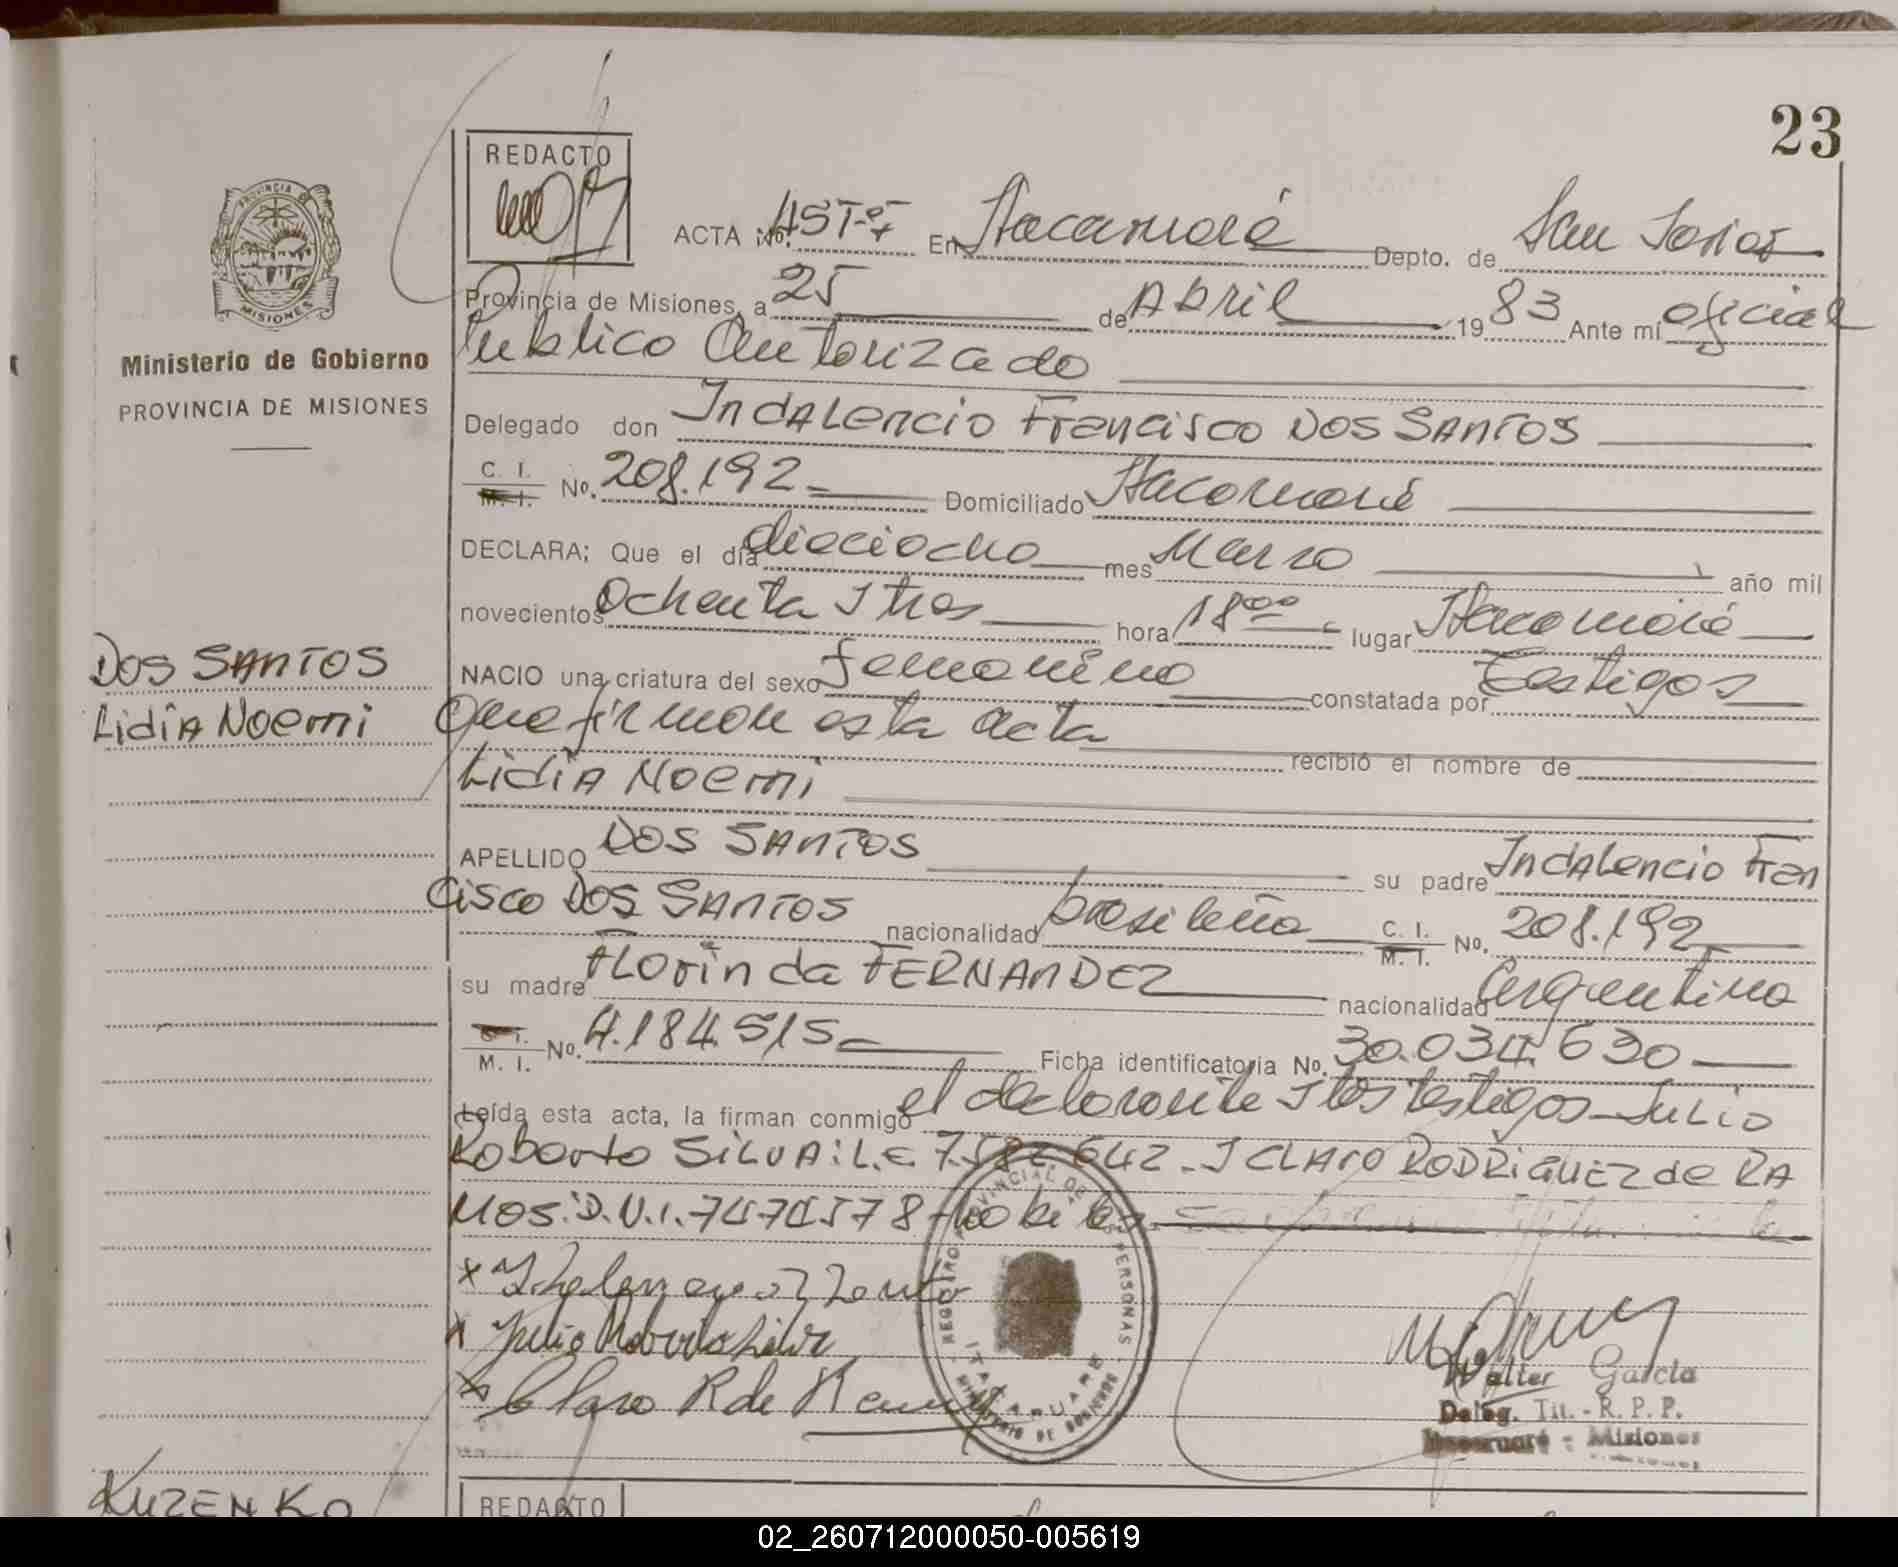 23
REDACTO
ACTA No. 45T-oT En Itacaruaré Depto. de San Javier
Provincia de Misiones, a 25 de Abril 19 83 Ante mi oficial
Publico Autorizado
PROVINCIA
MISIONES
Ministerio de Gobierno
PROVINCIA DE MISIONES
Delegado don INDALENCIO Francisco DOS SANTOS
C. I. M. I. No. 208.192 Domiciliado Itacaruaré
DECLARA; Que el día dieciocho mes Marzo año mil
novecientos Ochenta y tres hora 18 oo lugar Itacaruaré
DOS SANTOS
Lidia Noemi
NACIO una criatura del sexo femenino constatada por Testigos
Que firman esta acta recibió el nombre de
Lidia Noemi
APELLIDO DOS SANTOS su padre INDALENCIO Fran
cisco DOS SANTOS nacionalidad brasileña C. I. M. I. No. 208.192
su madre FLORINDA FERNANDEZ nacionalidad Argentina
C. I. M. I. No. 4.184.515 Ficha identificatoria No. 30.034.630
Leída esta acta, la firman conmigo el declarante y los testigos Julio
Roberto SILVA: L.E. 7.582.642 - y CLARO RODRIGUEZ de RA
MOS: D.N.I. 7474578 - habiles
x
x Julio Roberto Silva
x Claro R de Ramos
REGISTRO PROVINCIAL DE LAS PERSONAS
ITACARUARE
MINISTERIO DE GOBIERNO
Walter García
Deleg. Tit. - R. P. P.
Itacaruaré - Misiones
KUZENKO
REDACTO
02_260712000050-005619